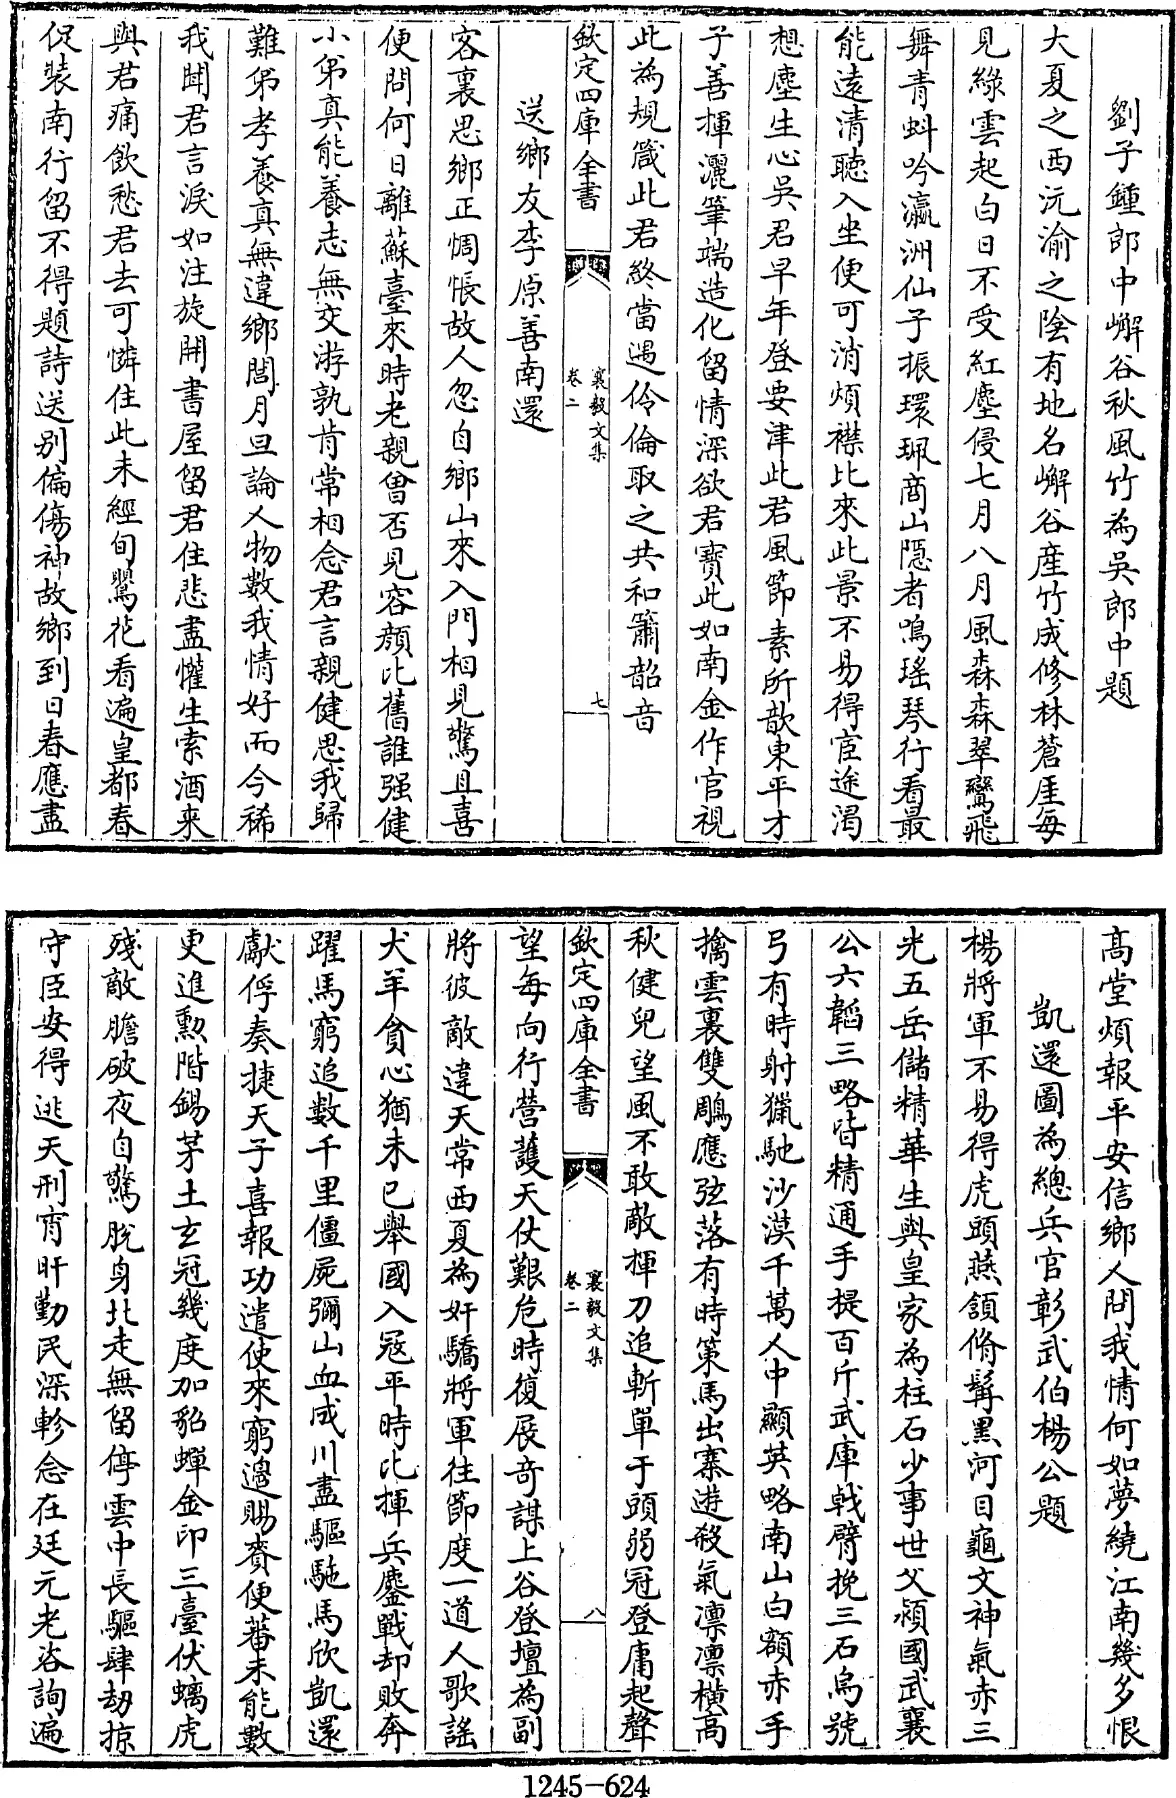 劉子鍾郎中嶰谷秋風竹為吳郎中題
大夏之西沅渝之陰有地名嶰谷産竹成修林蒼厓每
見綠雲起白日不受紅塵侵七月八月風森森翠鸞飛
舞青虯吟瀛洲仙子振環珮商山隱者鳴瑤琴行看最
能遠清聽入坐便可消煩襟比來此景不易得宦途渴
想塵生心吳君早年登要津此君風節素所歆東平才
子善揮灑筆端造化留情深欲君寶此如南金作官視
此為規箴此君終當遇伶倫取之共和簫韶音
欽定四庫全書
襄毅文集
卷二
七
送鄉友李原善南還
客裏思鄉正惆悵故人忽自鄉山來入門相見驚且喜
便問何日離蘇臺來時老親曾否見容顏比舊誰强健
小弟真能養志無交游孰肯常相念君言親健思我歸
難弟孝養真無違鄉閭月旦論人物數我情好而今稀
我聞君言淚如注旋開書屋留君住悲盡懽生索酒來
與君痛飲愁君去可憐住此未經旬鶯花看遍皇都春
促裝南行留不得題詩送别偏傷神故鄉到日春應盡
髙堂煩報平安信鄉人問我情何如夢繞江南幾多恨
凱還圖為總兵官彰武伯楊公題
楊將軍不易得虎頭燕頷脩髯黑河目龜文神氣赤三
光五岳儲精華生與皇家為柱石少事世父潁國武襄
公六韜三略皆精通手提百斤武庫戟臂挽三石烏號
弓有時射獵馳沙漠千萬人中顯英略南山白額赤手
擒雲裏雙鵰應弦落有時策馬出寨遊殺氣凛凛横高
秋健兒望風不敢敵揮刀追斬單于頭弱冠登庸起聲
欽定四庫全書
襄毅文集
卷二
八
望每向行營護天仗艱危時復展奇謀上谷登壇為副
將彼敵違天常西夏為奸驕將軍往節度一道人歌謠
犬羊貪心猶未已舉國入寇平時比揮兵鏖戰却敗奔
躍馬窮追數千里僵屍彌山血成川盡驅駞馬欣凱還
獻俘奏捷天子喜報功遣使來窮邊賜賚便蕃未能數
更進勲階錫茅土玄冠幾度加貂蟬金印三臺伏螭虎
殘敵膽破夜自驚脱身北走無留停雲中長驅肆劫掠
守臣安得逃天刑宵旰勤民深軫念在廷元老咨詢遍
1245-624